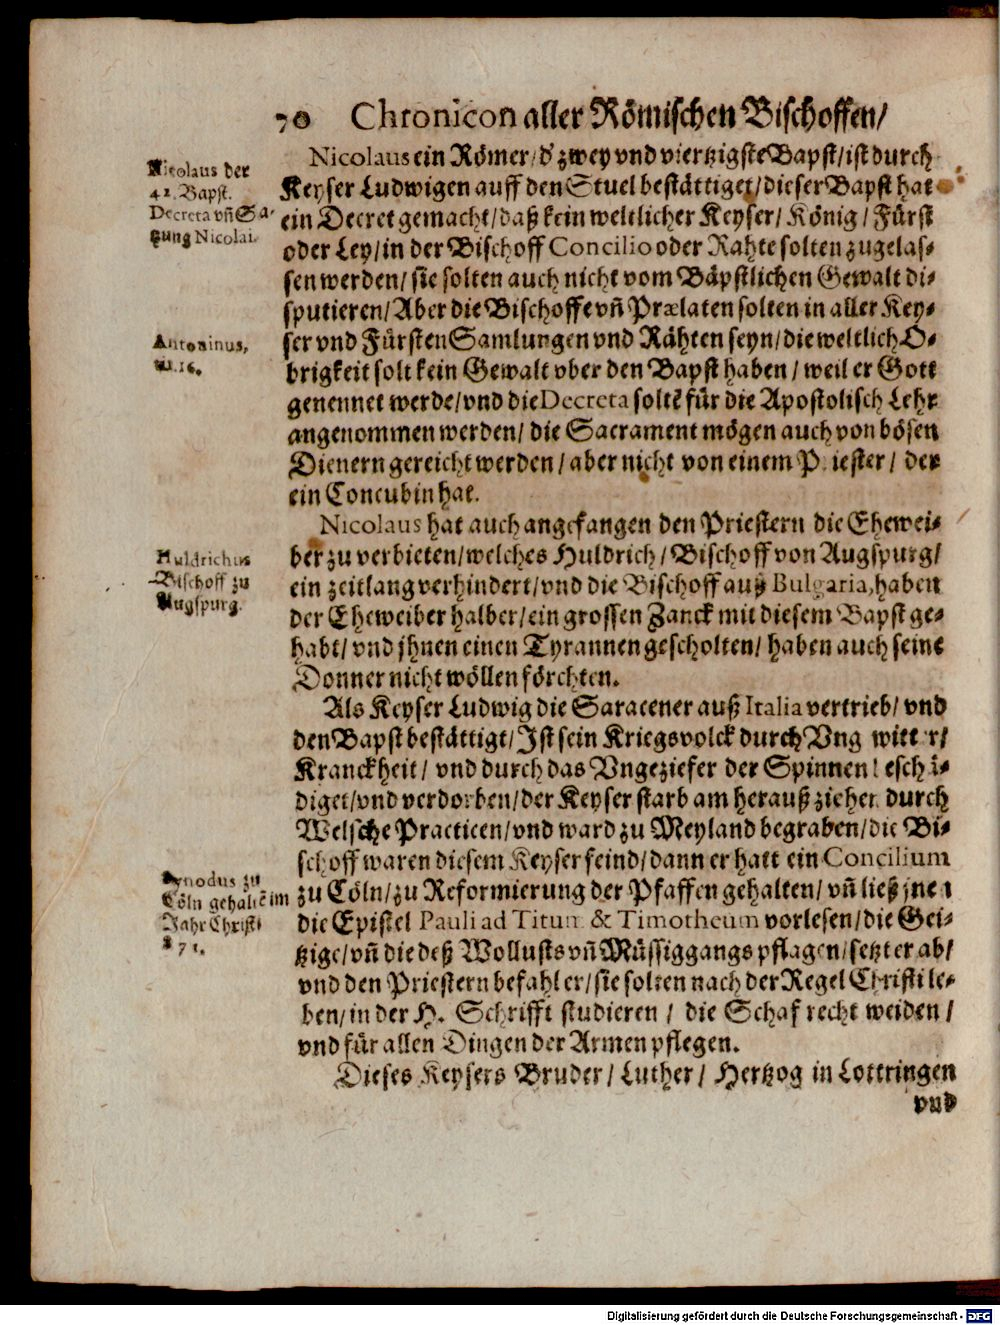 70 Chronicon aller Römischen Bischoffen/
Nicolaus der
42. Bapst.
Decreta vñ Sa-
tzung Nicolai.
Nicolaus ein Römer/ d' zwey vnd viertzigste Bapst/ ist durch
Keyser Ludwigen auff den Stuel bestättiget/ dieser Bapst hat
ein Decret gemacht/ daß kein weltlicher Keyser/ König/ Fürst
oder Ley/ in der Bischoff Concilio oder Rahte solten zugelas-
sen werden/ sie solten auch nicht vom Bäpstlichen Gewalt di-
sputieren/ Aber die Bischoffe vñ Prælaten solten in aller Key-
Antoninus,
16.
ser vnd Fürsten Samlungen vnd Rähten seyn/ die weltlich O-
brigkeit solt kein Gewalt vber den Bapst haben/ weil er Gott
genennet werde/ vnd die Decreta soltē für die Apostolisch Lehr
angenommen werden/ die Sacrament mögen auch von bösen
Dienern gereicht werden/ aber nicht von einem Priester/ der
ein Concubin hat.
Nicolaus hat auch angefangen den Priestern die Ehewei-
Huldrichus
Bischoff zu
Augspurg.
ber zu verbieten/ welches Huldrich/ Bischoff von Augspurg/
ein zeitlang verhindert/ vnd die Bischoff auß Bulgaria, haben
der Eheweiber halber/ ein grossen Zanck mit diesem Bapst ge-
habt/ vnd jhnen einen Tyrannen gescholten/ haben auch seine
Donner nicht wöllen förchten.
Als Keyser Ludwig die Saracener auß Italia vertrieb/ vnd
den Bapst bestättigt/ Ist sein Kriegsvolck durch Vngwitter/
Kranckheit/ vnd durch das Vngeziefer der Spinnen beschä-
diget/ vnd verdorben/ der Keyser starb am herauß ziehen durch
Welsche Practicen/ vnd ward zu Meyland begraben/ die Bi-
schoff waren diesem Keyser feind/ dann er hatt ein Concilium
Synodus zu
Cöln gehaltē im
Jahr Christi
871.
zu Cöln/ zu Reformierung der Pfaffen gehalten/ vñ ließ jnen
die Epistel Pauli ad Titum & Timotheum vorlesen/ die Gei-
tzige/ vñ die deß Wollusts vñ Müssiggangs pflagen/ setzt er ab/
vnd den Priestern befahl er/ sie solten nach der Regel Christi le-
ben/ in der H. Schrifft studieren/ die Schaf recht weiden/
vnd für allen Dingen der Armen pflegen.
Dieses Keysers Bruder/ Luther/ Hertzog in Lottringen
vnd
Digitalisierung gefördert durch die Deutsche Forschungsgemeinschaft - DFG